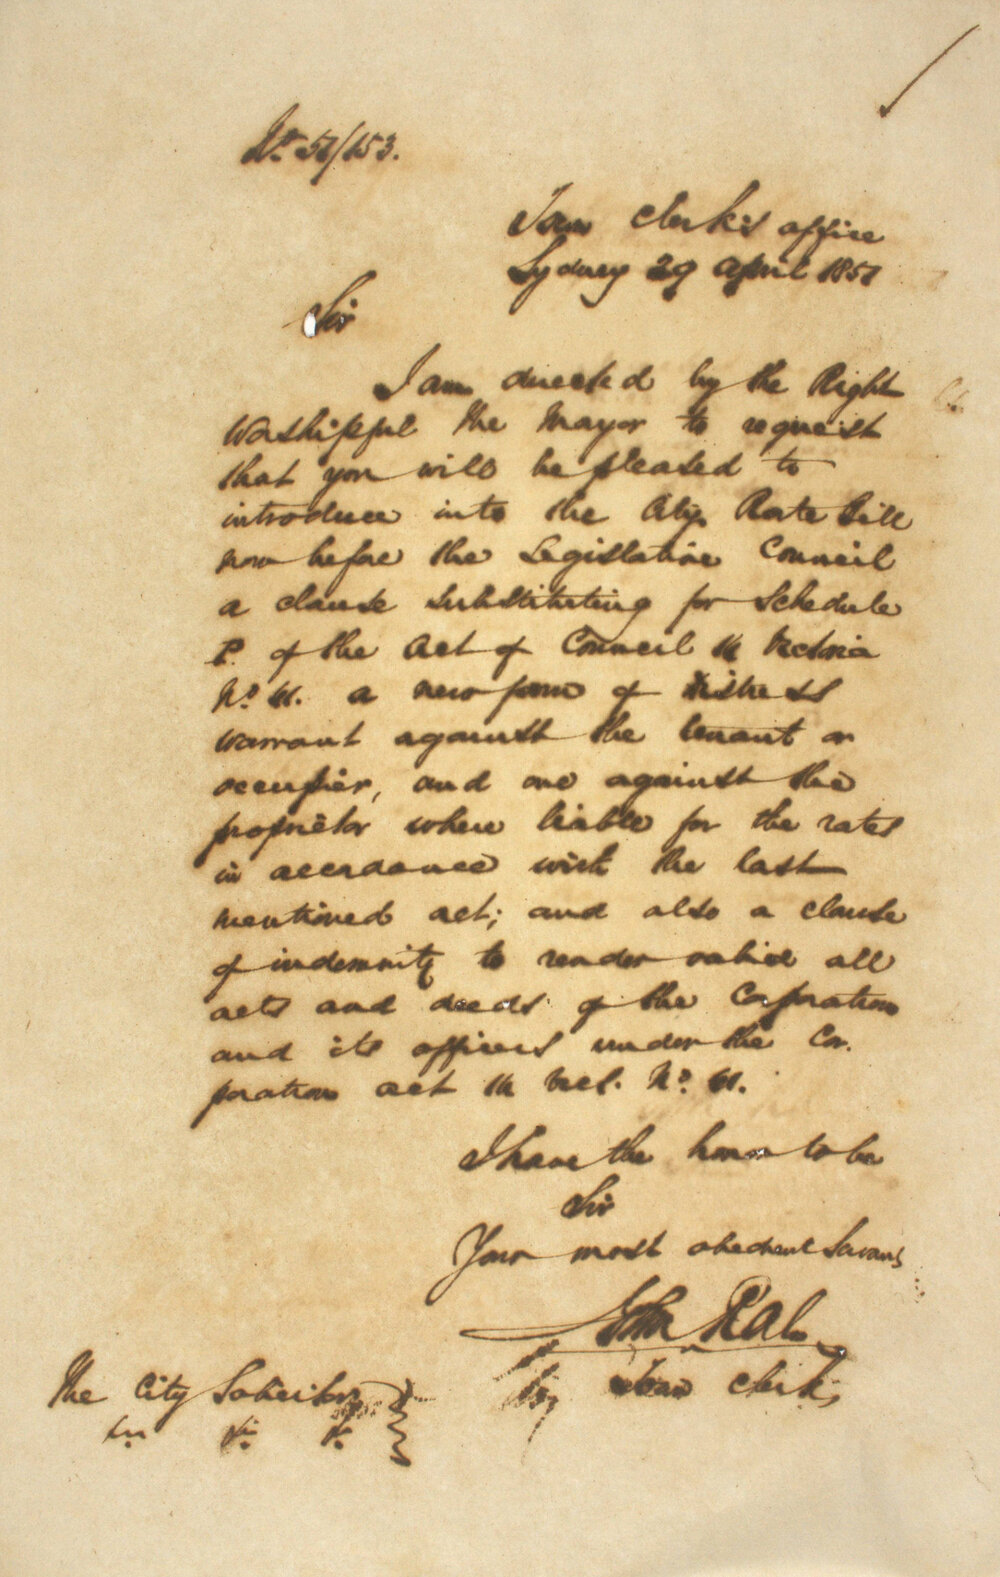 No. 51/153.
Town Clerk's office
Sydney 29 April 1851
Sir
I am directed by the Right
Worshipful the Mayor to request
that you will be pleased to
introduce into the City Rate Bill
now before the Legislative Council
a clause substituting for Schedule
P. of the Act of Council 14 Victoria
No. 41. a new form of distress
warrant against the tenant or
occupier, and one against the
proprietor where liable for the rates
in accordance with the last
mentioned act; and also a clause
of indemnity to render valid all
acts and deeds of the Corporation
and its officers under the Cor.
poration act 14 Vict. No. 41.
I have the honor to be
Sir
Your most obedient Servant
John Rae
Town Clerk
The City Solicitor
&c. &c. &c.